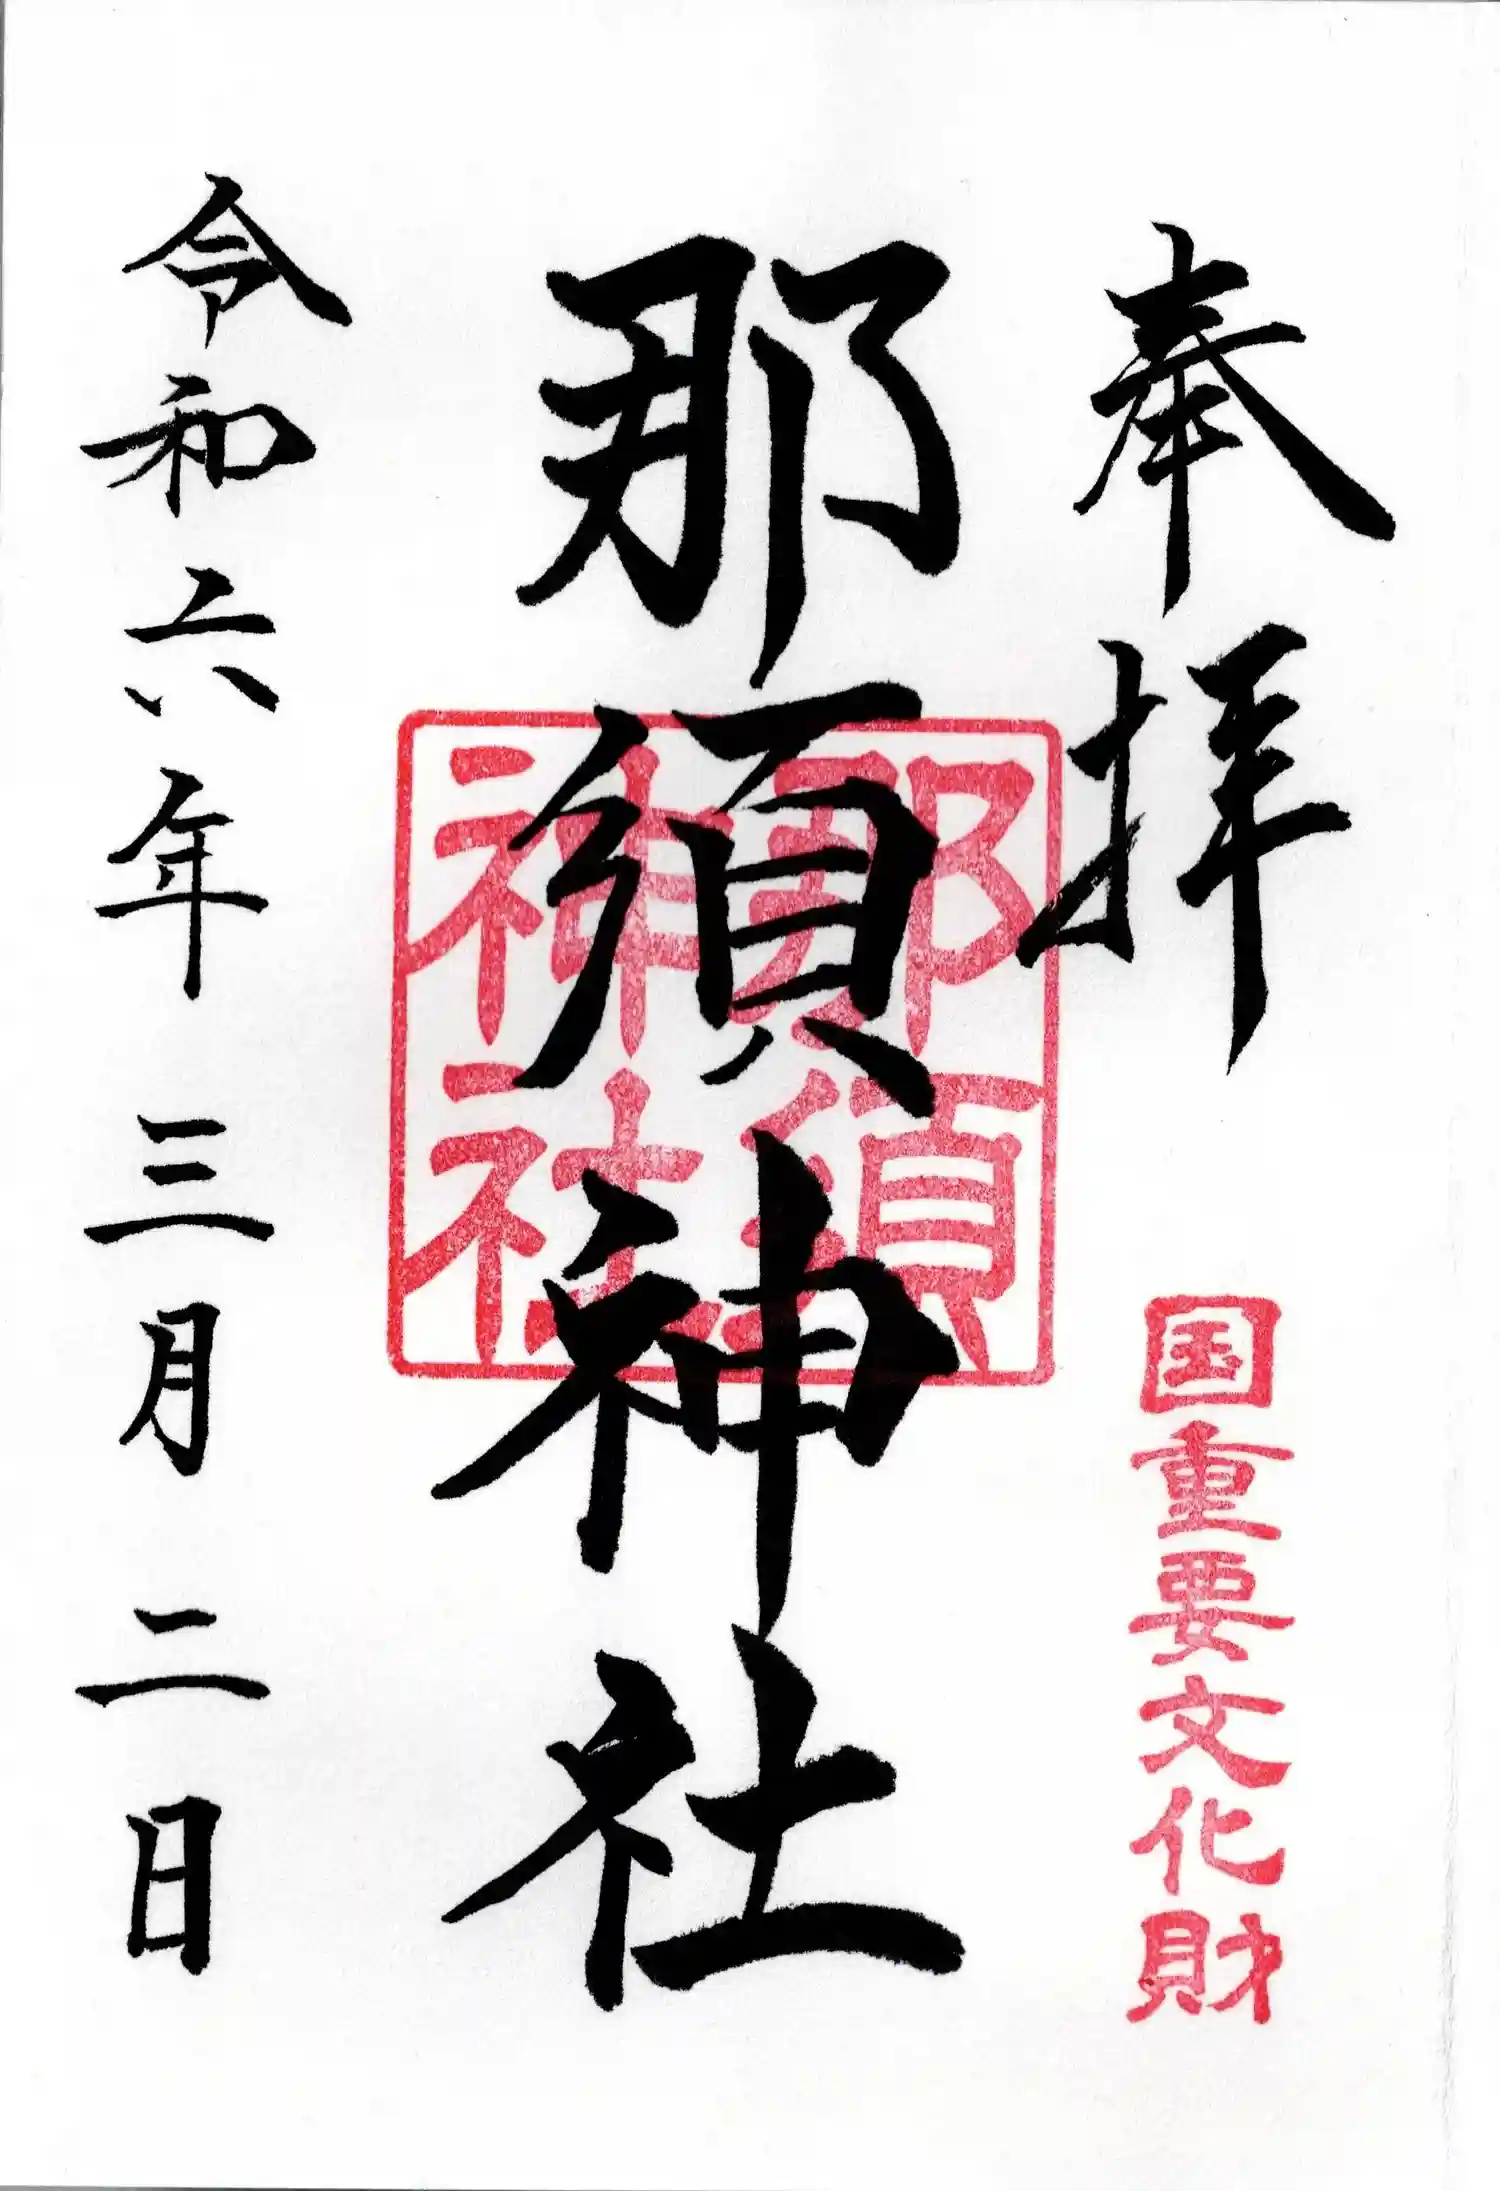 奉拝
国重要文化財
那須神社
那須
神社
令和六年三月二日